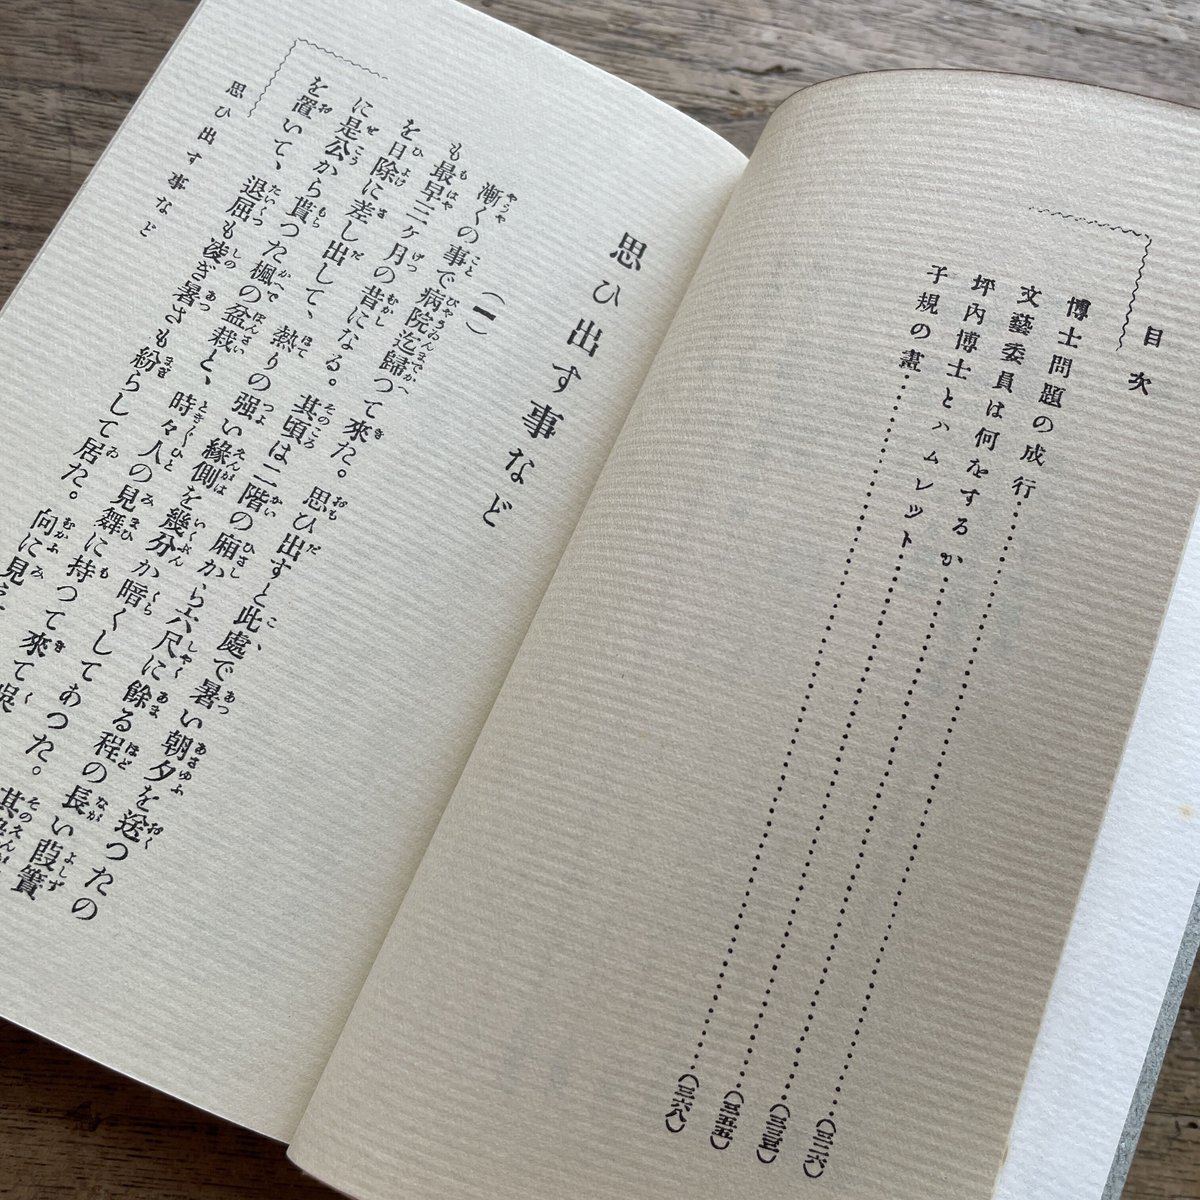 目次
博士問題の成行……………(三二六)
文藝委員は何をするか……………(三三五)
坪内博士とハムレット……………(三五五)
子規の畫……………(三六八)
思ひ出す事など
(一)
漸くの事で病院迄歸つて來た。思ひ出すと此處で暑い朝夕を送つたの
も最早三ケ月の昔になる。其頃は二階の廂から六尺に餘る程の長い葭簀
を日除に差し出して、熱りの强い緣側を幾分か暗くしてあつた。其
に是公から貰つた楓の盆栽と、時々人の見舞に持つて來て
を置いて、退屈も凌ぎ暑さも紛らして居た。向に見
思ひ出す事など